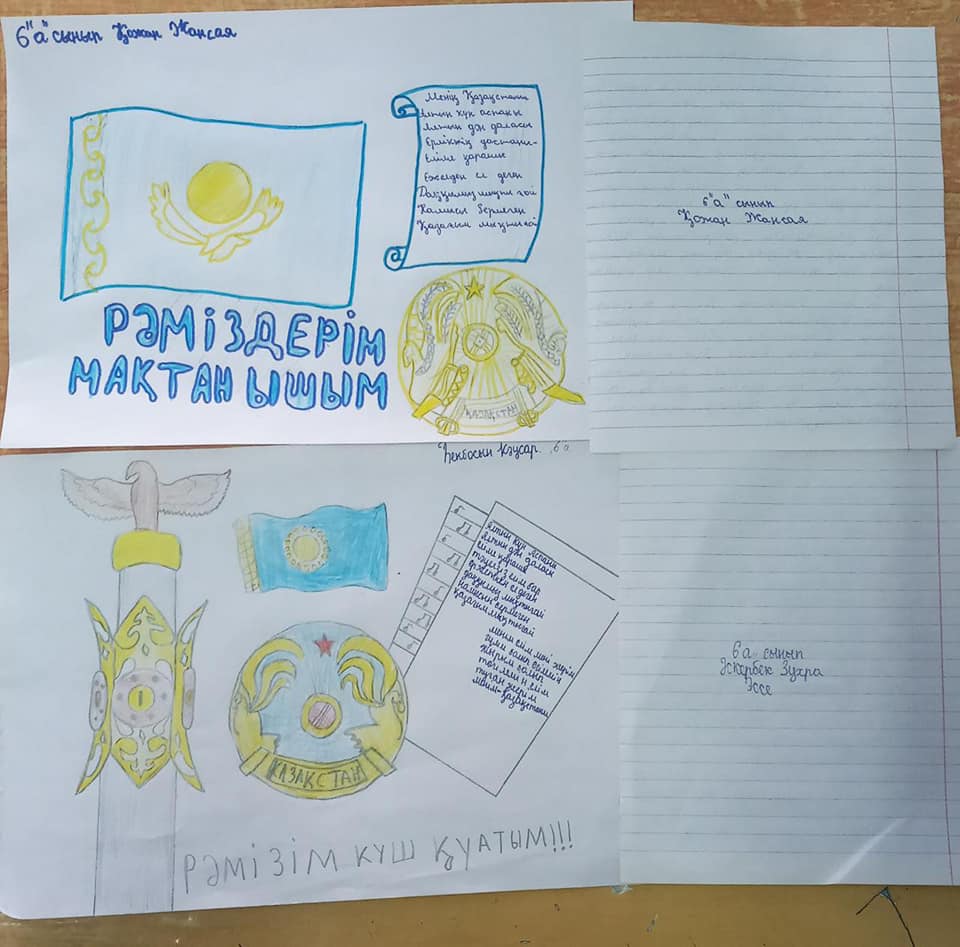 6 "а" сынып Қожан Жансая
Менің Қазақстаным
Алтын күн аспаны
Алтын дән даласы
Ерліктің дастаны-
Еліме қарашы
Ежелден ер деген
Даңқымыз шықты ғой
Намысын бермеген
Қазағым мықты ғой
РӘМІЗДЕРІМ
МАҚТАНЫШЫМ
ҚАЗАҚСТАН
6 "а" сынып
Қожан Жансая
Кәусар 6"а"
Алтын күн аспаны
Алтын дән даласы
еліме қарашы
ер деген
даңқымыз шықты ғой
намысын бермеген
қазағым мықты ғой
менің елім менің жерім
гүлің болып егілемін
жырың болып
төгілемін елім
туған жерім
менің-Қазақстаным
ҚАЗАҚСТАН
РӘМІЗІМ КҮШ ҚУАТЫМ!!!
6а сынып
Әскербек Зухра
Эссе